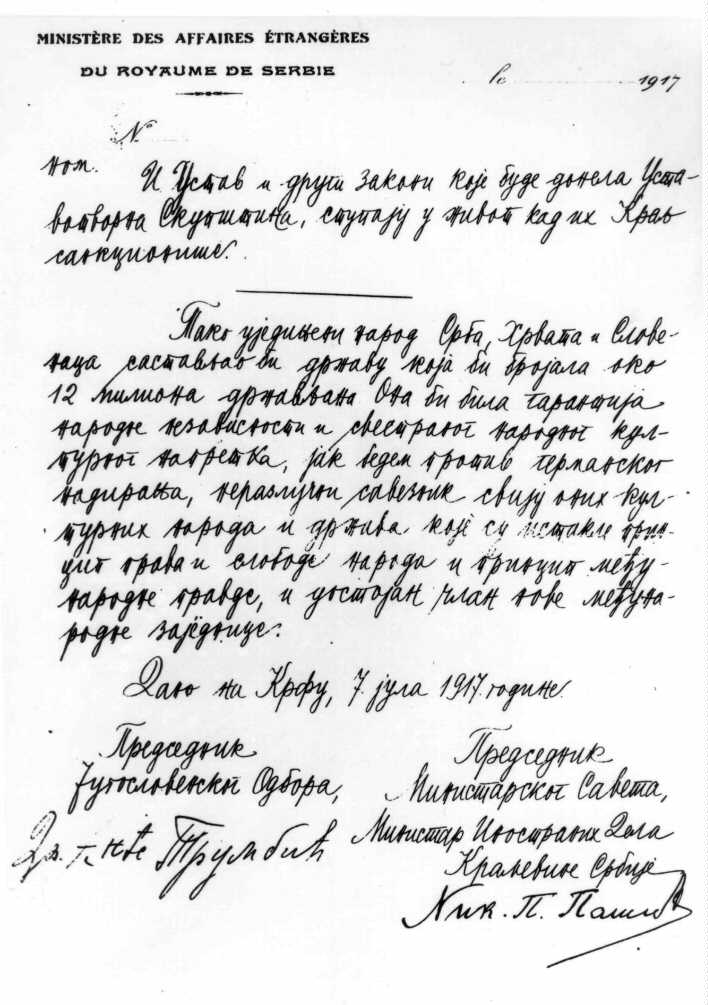 MINISTÈRE DES AFFAIRES ÉTRANGÈRES
DU ROYAUME DE SERBIE
le 1917
№
ном.
И Устав и други закони које буде донела Уста-
вотворна Скупштина, ступају у живот кад их Краљ
санкционише.
Тако уједињени народ Срба, Хрвата и Слове-
наца састављао би државу која би бројала око
12 милиона држављана. Она би била гарантија
народне независности и свестраног народног кул-
турног напретка, јак бедем против германског
надирања, неразлучни савезник свију оних кул-
турних народа и држава које су истакле прин-
цип права и слободе народа и принцип међу-
народне правде, и достојан члан нове међуна-
родне заједнице.
Дано на Крфу, 7. јула 1917. године.
Председник
Југословенског Одбора,
Др. Трумбић
Председник
Министарског Савета,
Министар Иностраних Дела
Краљевине Србије
Ник. П. Пашић